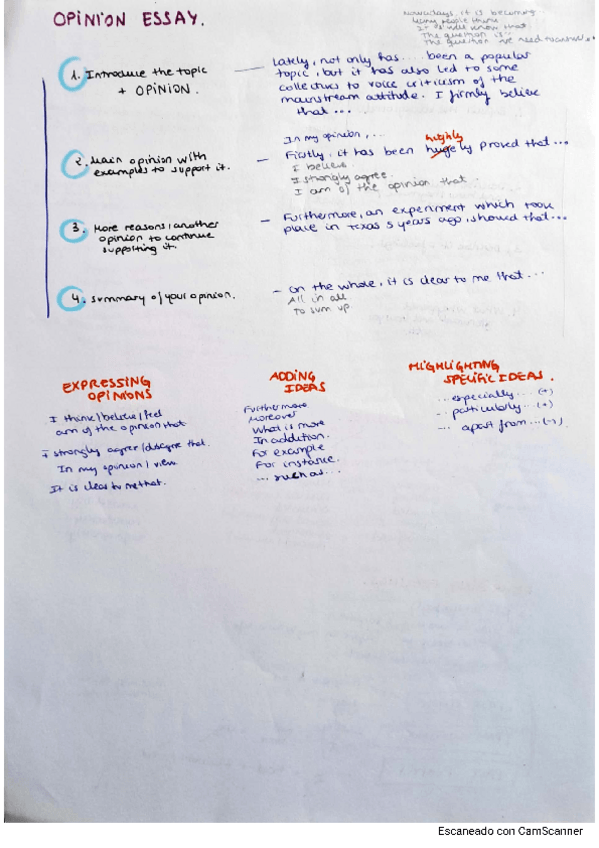 OPINION ESSAY.
Nowadays, it is becoming...
Many people think
It is well know that
The question is
The question we need to answer is
1. Introduce the topic
+ OPINION.
Lately, not only has.... been a popular
topic, but it has also led to some
collectives to voice criticism of the
mainstream attitude. I firmly believe
that...
2. Main opinion with
examples to support it.
In my opinion, ...
highly
- Firstly, it has been hugely proved that...
I believe
I strongly agree
I am of the opinion that
3. More reasons / another
opinion to continue
supporting it.
- Furthermore, an experiment which took
place in Texas 5 years ago, showed that...
4. Summary of your opinion.
- On the whole, it is clear to me that...
All in all
To sum up
EXPRESSING
OPINIONS
I think / believe / feel
am of the opinion that
I strongly agree / disagree that.
In my opinion / view
It is clear to me that.
ADDING
IDEAS
Furthermore
Moreover
What is more
In addition.
For example
For instance.
... such as...
HIGHLIGHTING
SPECIFIC IDEAS.
... especially... (+)
... particularly... (+)
... apart from... (-)
Escaneado con CamScanner